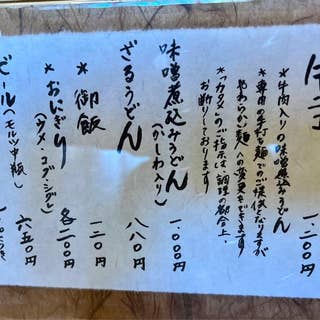 牛肉入りの味噌煮込みうどん 一、二〇〇円
*専用の生打ち麺でのご提供になりますが
やわらかい麺への変更もできます
*「カタメ」のご指示は、調理の都合上
お断りしております
味噌煮込みうどん(かしわ入り) 一、〇〇〇円
ざるうどん 八八〇円
*御飯 一二〇円
*おにぎり(ウメ・コブ・シグレ) 各二〇〇円
ビール(モルツ中瓶) 六五〇円